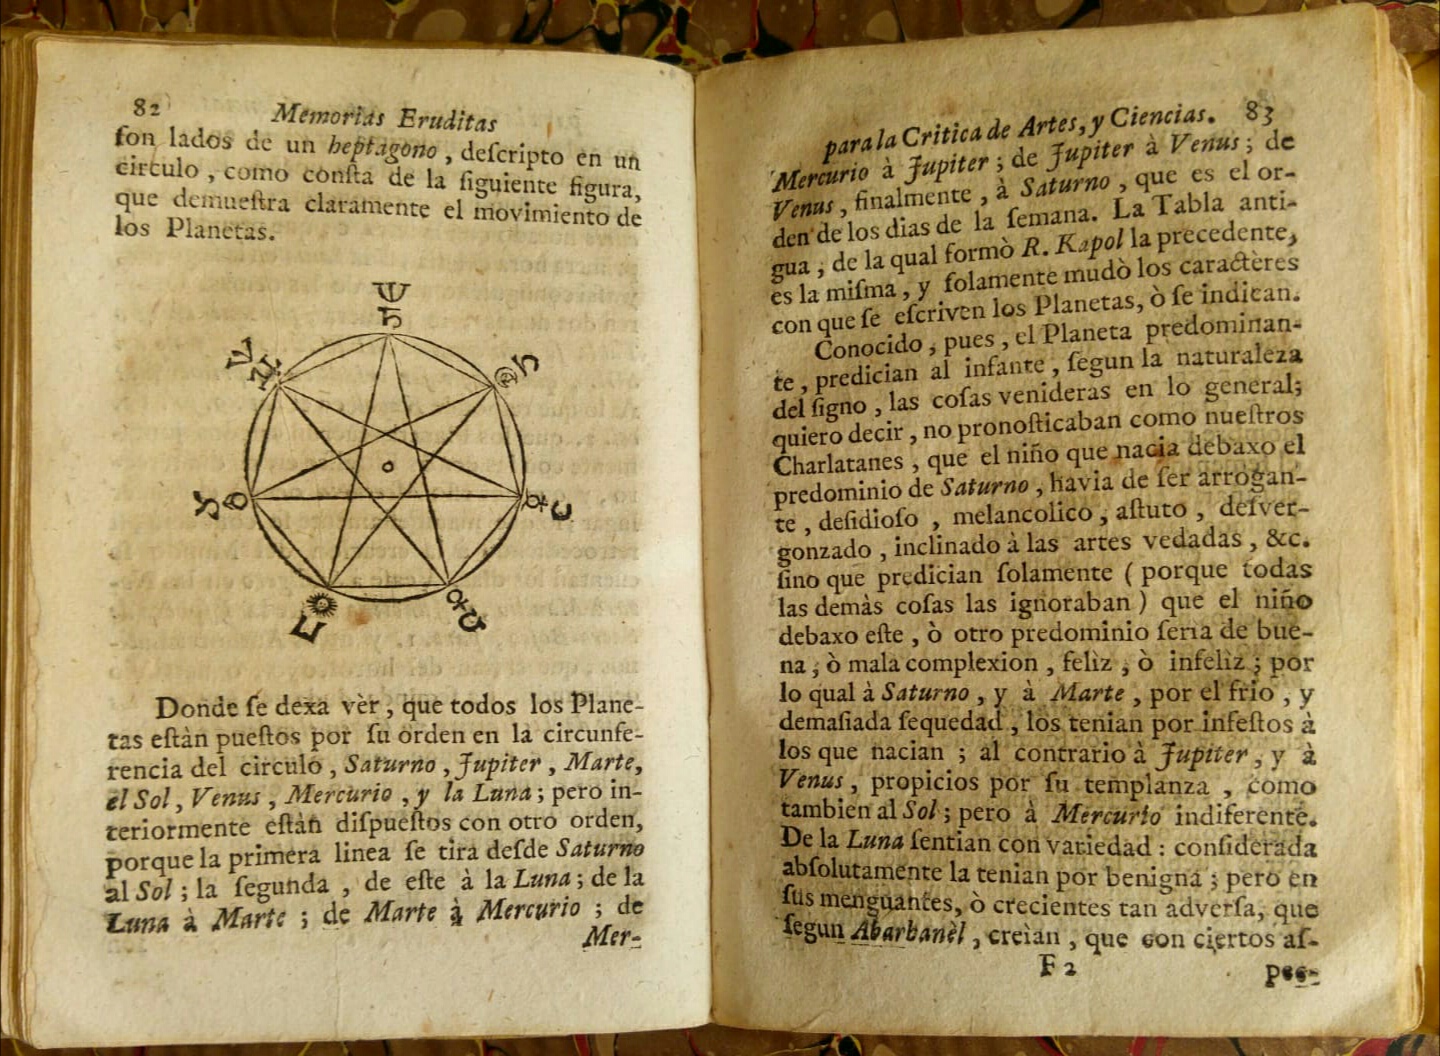 82 Memorias Eruditas
ſon lados de un heptagono, deſcripto en un
circulo, como conſta de la ſiguiente figura,
que demueſtra claramente el movimiento de
los Planetas.
♄
♃
☿
♀
Donde ſe dexa vèr, que todos los Plane-
tas eſtàn pueſtos por ſu orden en la circunfe-
rencia del circulo, Saturno, Jupiter, Marte,
el Sol, Venus, Mercurio, y la Luna; pero in-
teriormente eſtàn diſpueſtos con otro orden,
porque la primera linea ſe tira deſde Saturno
al Sol; la ſegunda, de eſte à la Luna; de la
Luna à Marte; de Marte à Mercurio; de
Mer-
para la Critica de Artes, y Ciencias. 83
Mercurio à Jupiter; de Jupiter à Venus; de
Venus, finalmente, à Saturno, que es el or-
den de los dias de la ſemana. La Tabla anti-
gua, de la qual formò R. Kapol la precedente,
es la miſma, y ſolamente mudò los caractères
con que ſe eſcriven los Planetas, ò ſe indican.
Conocido, pues, el Planeta predominan-
te, predician al infante, ſegun la naturaleza
del ſigno, las coſas venideras en lo general;
quiero decir, no pronoſticaban como nueſtros
Charlatanes, que el niño que nacia debaxo el
predominio de Saturno, havia de ſer arrogan-
te, deſidioſo, melancolico, aſtuto, deſver-
gonzado, inclinado à las artes vedadas, &c.
ſino que predician ſolamente (porque todas
las demàs coſas las ignoraban) que el niño
debaxo eſte, ò otro predominio ſeria de bue-
na, ò mala complexion, felìz, ò infelìz; por
lo qual à Saturno, y à Marte, por el frio, y
demaſiada ſequedad, los tenian por infeſtos à
los que nacian; al contrario à Jupiter, y à
Venus, propicios por ſu templanza, como
tambien al Sol; pero à Mercurio indiferente.
De la Luna ſentian con variedad: conſiderada
abſolutamente la tenian por benigna; pero en
ſus menguantes, ò crecientes tan adverſa, que
ſegun Abarbanèl, creìan, que con ciertos aſ-
F 2 pec-